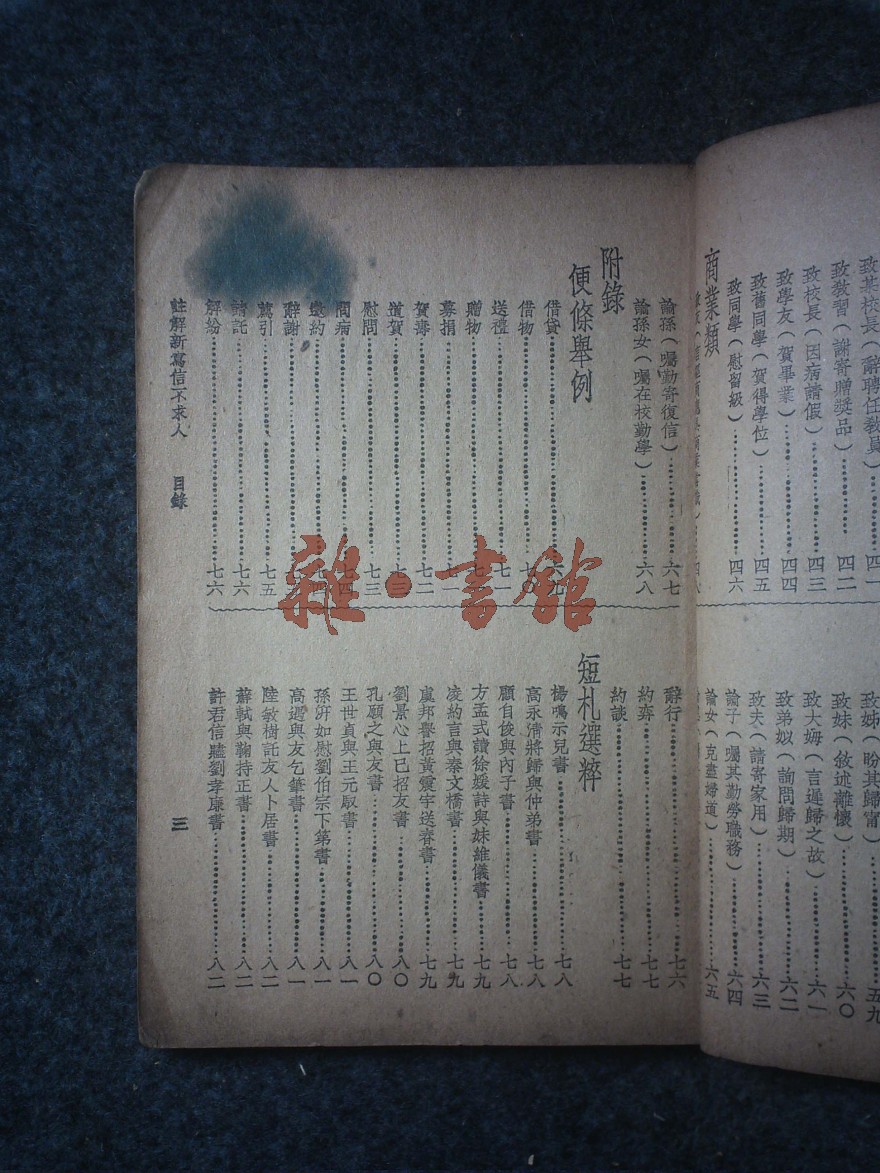 致某校長（辭聘任教員）……四一
致教習（謝寄贈獎品）……四二
致校長（因病請假）……四三
致學友（賀畢業）……四四
致舊同學（賀得學位）……四五
致同學（慰留級）……四六
商業類
致姊（盼其歸甯）……五九
致妹（敘述離懷）……六〇
致大姆（言遲歸之故）……六一
致弟姒（詢問歸期）……六二
致夫（請寄家用）……六三
諭子（囑其勤勞職務）……六四
諭女（克盡婦道）……六五
諭孫（囑勤寄復信）……六七
諭孫女（囑在校勤學）……六八
附錄
便條舉例
借貸……六九
借物……七〇
送禮……七
贈物……七
募捐……七一
賀壽……七二
道賀……七三
慰問……七三
問病……七四
邀約……七四
辭謝……七五
薦引……七五
請託……七六
解紛……七六
辭行……七六
約弈……七七
約談……七七
短札選粹
楊鳴示兒書……七八
高永清將歸與仲弟書……七八
顧自俊與內子書……七八
方孟式讀徐媛詩與妹維儀書……七九
凌約言與秦文橋書……七九
虞邦譽招黃震宇送春書……七九
劉景心上巳招友書……八〇
孔願之與友書……八〇
王世貞與王元馭書……八一
孫汧如慰劉伯宗下第書……八一
高遜與友乞筆書……八一
陸敏樹託友人卜居書……八二
蘇軾與鞠持正書……八二
許君信贐劉孝廉書……八二
註解新寫信不求人　目錄
三
雜·書館